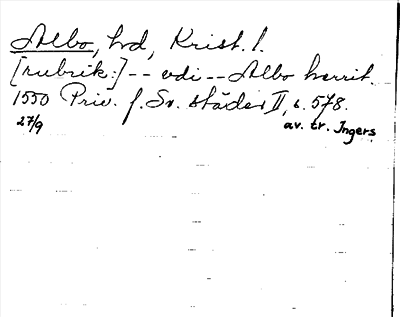 Albo, hd, Krist. l.
[rubrik:] -- vdi -- Albo herrit.
1550 Priv. f. Sv. städer II, s. 578.
27/9 av. tr. Ingers